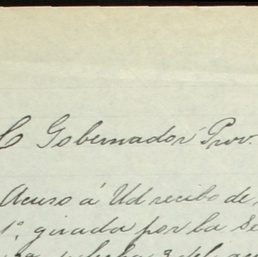 C Gobernador Prov.
Acuso á Ud recibo de
1ª girada por la Se